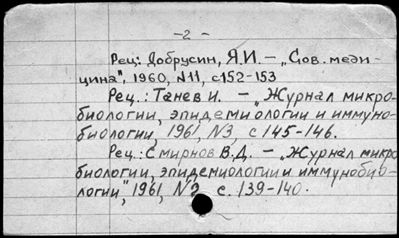 - 2 -
Рец: Добрусин, Я.И. – „Сов. меди-
цина", 1960, N11, с152-153
Рец.: Танев И. – „Журнал микро-
биологии, эпидемиологии и иммуно-
биологии, 1961, N3, с 145-146.
Рец.: Смирнов В.Д. – „Журнал микро
биологии, эпидемиологии и иммунобио-
логии", 1961, N2 с. 139-140.